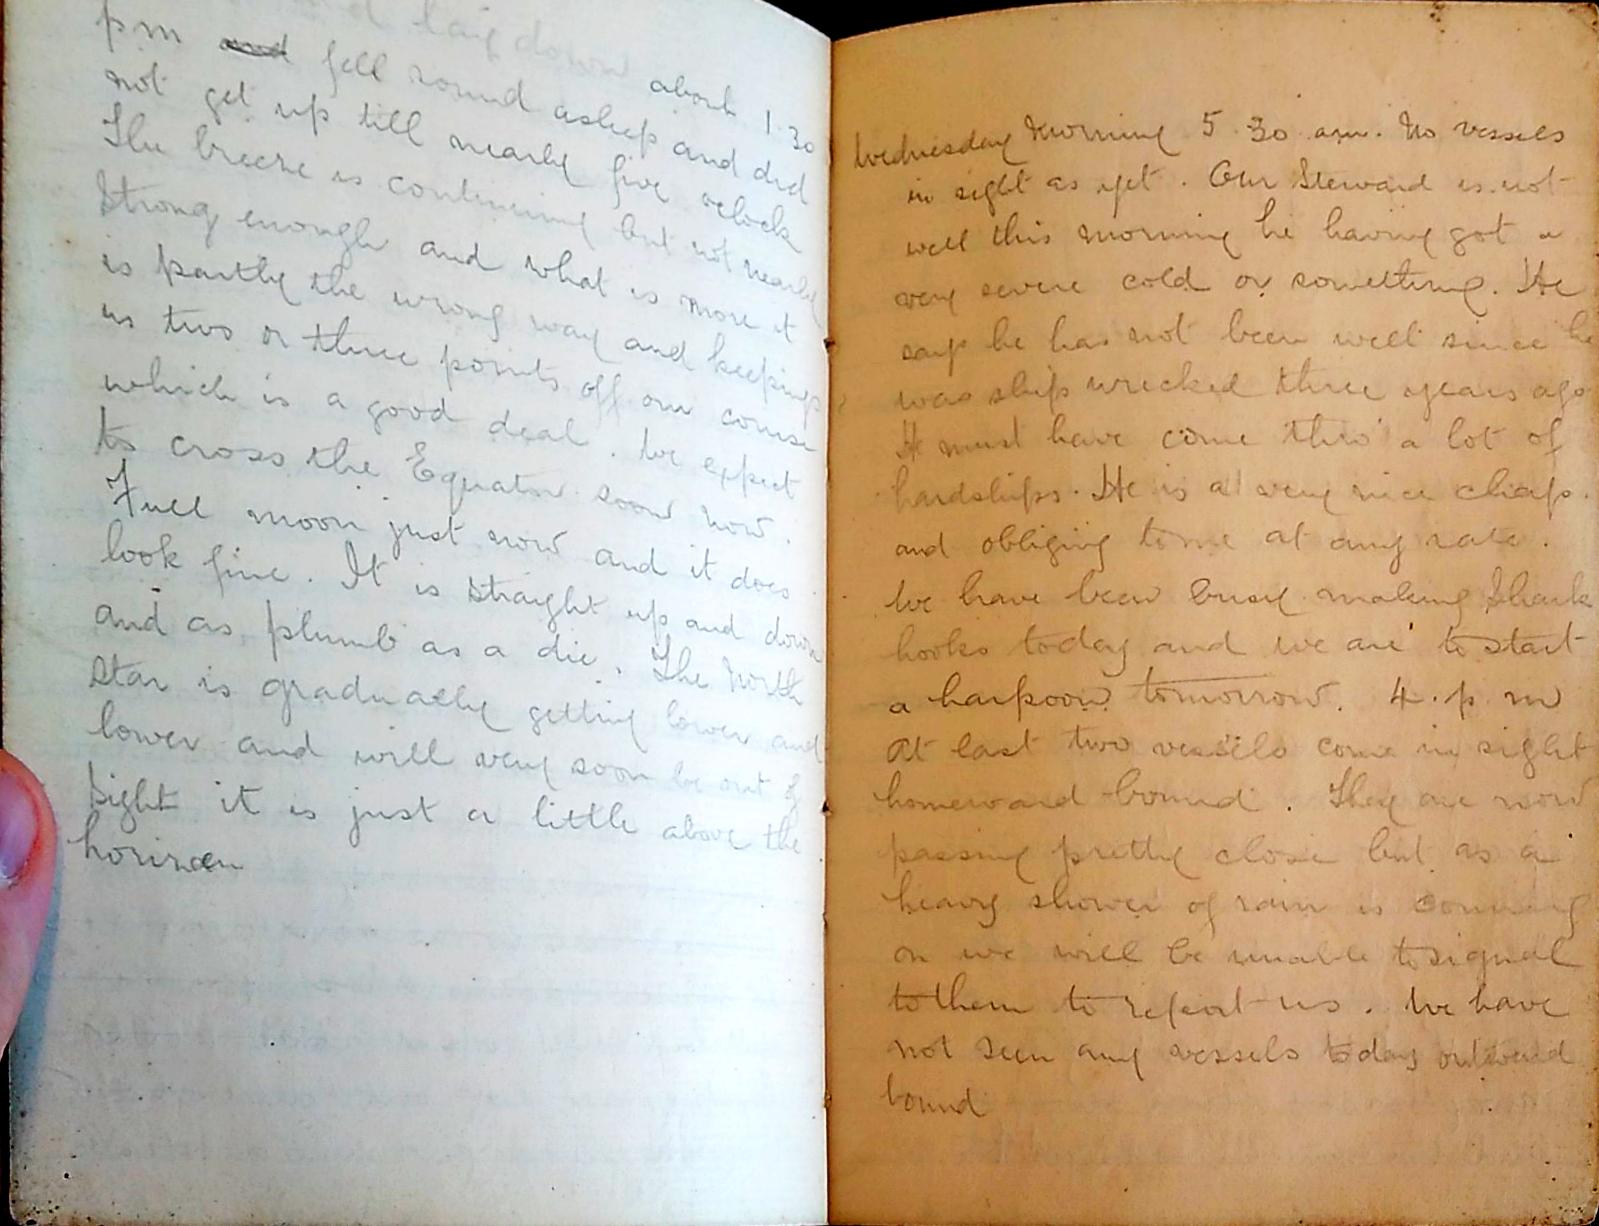 and laid down about 1.30
pm and fell sound asleep and did
not get up till nearly five oclock
The breeze is continuing but not nearly
strong enough and what is more it
is partly the wrong way and keeping
us two or three points off our course
which is a good deal. We expect
to cross the Equator soon now.
Full moon just now and it does
look fine. It is straight up and down
and as plumb as a die. The North
Star is gradually getting lower and
lower and will very soon be out of
sight it is just a little above the
horizon
Wednesday Morning 5.30 am. No vessels
in sight as yet. Our Steward is not
well this morning he having got a
very severe cold or something. He
says he has not been well since he
was ship wrecked three years ago
He must have come thro' a lot of
hardships. He is a very nice chap.
and obliging to me at any rate.
We have been busy making Shark
hooks today and we are to start
a harpoon tomorrow. 4.p.m
At last two vessels come in sight
homeward bound. They are now
passing pretty close but as a
heavy shower of rain is coming
on we will be unable to signal
to them to report us. We have
not seen any vessels today outward
bound